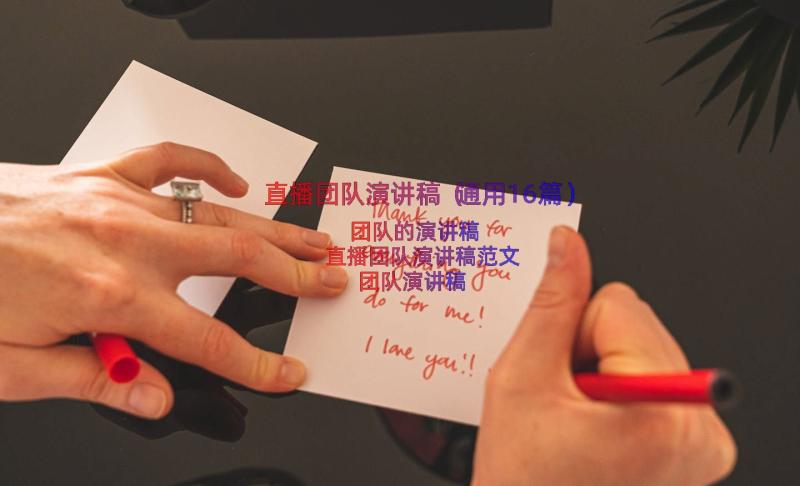 直播团队演讲稿（通用16篇）
Thank you for
团队的演讲稿
直播团队演讲稿范文
you
团队演讲稿
do for me!
I love you!!